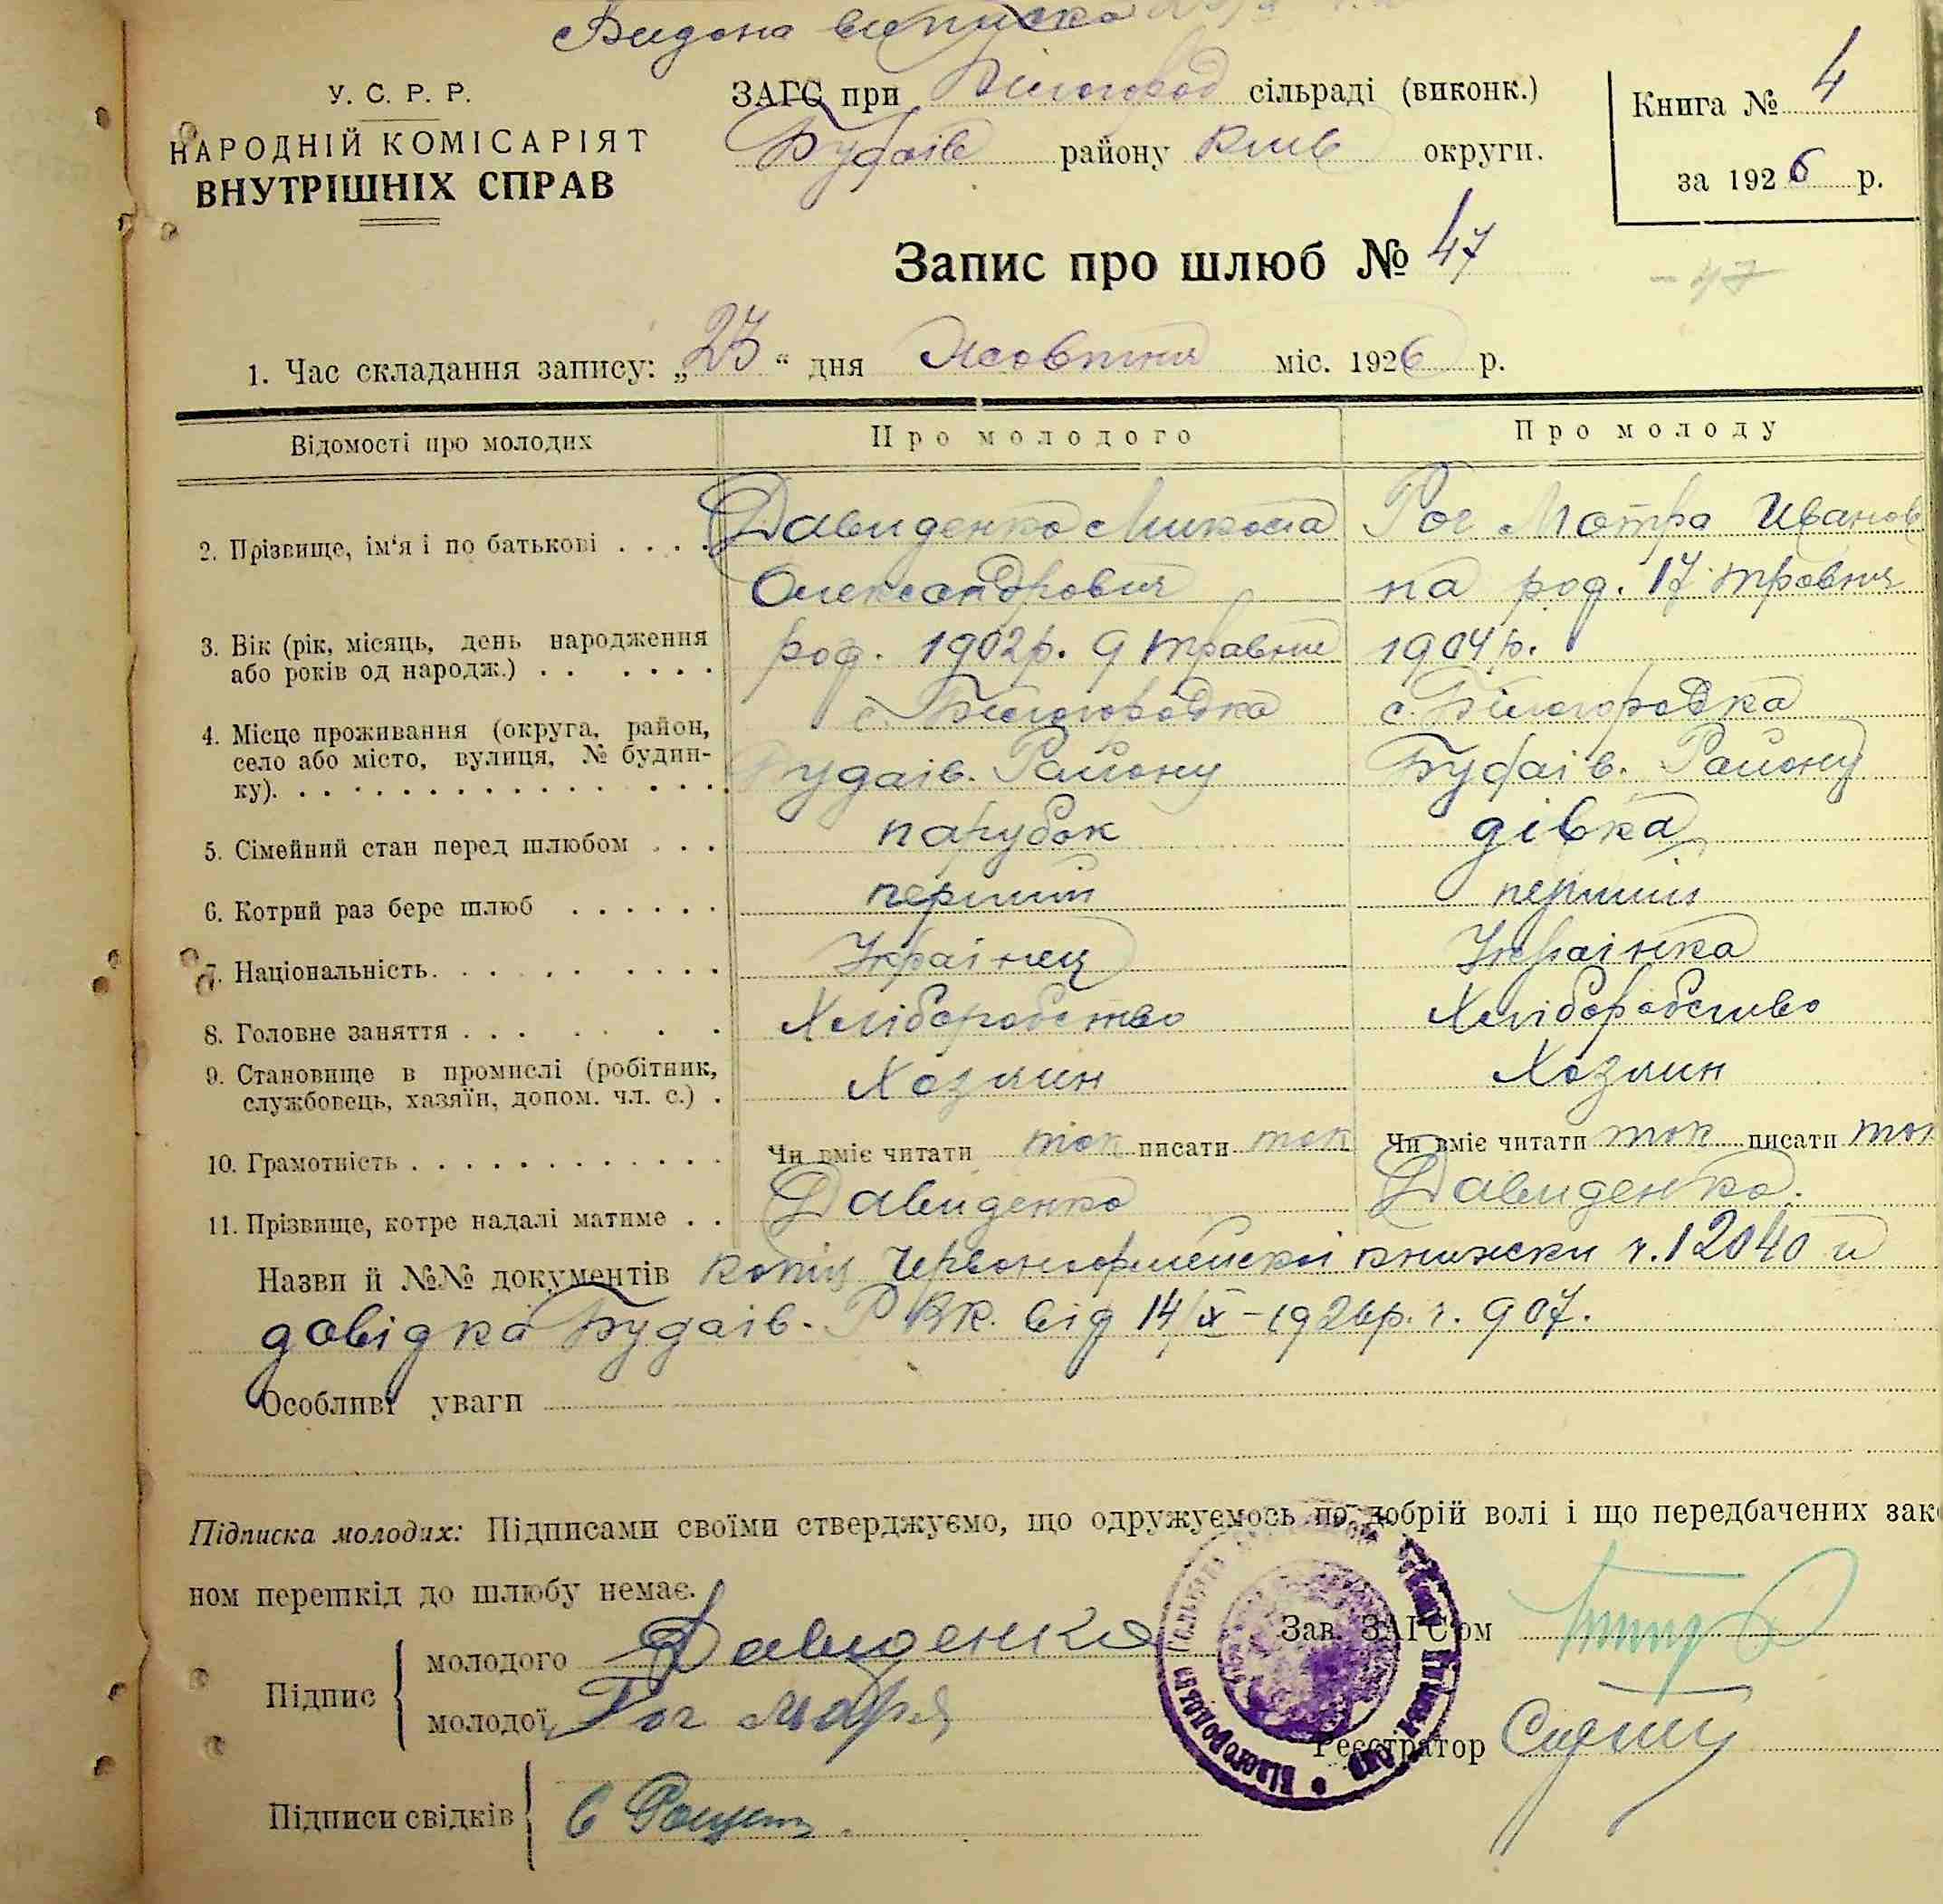 Видана виписка
У. С. Р. Р.
НАРОДНІЙ КОМІСАРІЯТ
ВНУТРІШНІХ СПРАВ
ЗАГС при Білогород сільраді (виконк.)
Будаїв району Київ округи.
Книга № 4
за 1926 р.
Запис про шлюб № 47
- 47
1. Час складання запису: „23“ дня Жовтня міс. 1926 р.
Відомості про молодих Про молодого Про молоду
2. Прізвище, ім'я і по батькові . . . . Давиденко Микола Рог Мотра Иванов
Олександрович на род. 17 травня
3. Вік (рік, місяць, день народження род. 1902р. 9 травня 1904 р.
або років од народж.) . . . . . .
4. Місце проживання (округа, район, с. Білогородка с. Білогородка
село або місто, вулиця, № будин- Будаів. Району Будаів. Району
ку). . . . . . . . . . . . . . . .
5. Сімейний стан перед шлюбом . . . парубок дівка
6. Котрий раз бере шлюб . . . . . . перший перший
7. Національність. . . . . . . . . Украінец Украінка
8. Головне заняття . . . . . . Хліборобство Хліборобство
9. Становище в промислі (робітник, Хозяин Хозяин
службовець, хазяїн, допом. чл. с.) .
10. Грамотність . . . . . . . . . . . . Чи вміє читати так писати так Чи вміє читати так писати так
11. Прізвище, котре надалі матиме . . Давиденко Давиденко.
Назви й №№ документів копія Червоноармейскоі книжски ч. 12040 и
довідка Будаів. РВК. від 14/X-1926р. ч. 907.
Особливі уваги
Підписка молодих: Підписами своїми стверджуємо, що одружуємось по добрій волі і що передбачених зако
ном перешкід до шлюбу немає.
Підпис
молодого Давиденко
молодої Рог
Зав. ЗАГС'ом
Реєстратор
Підписи свідків